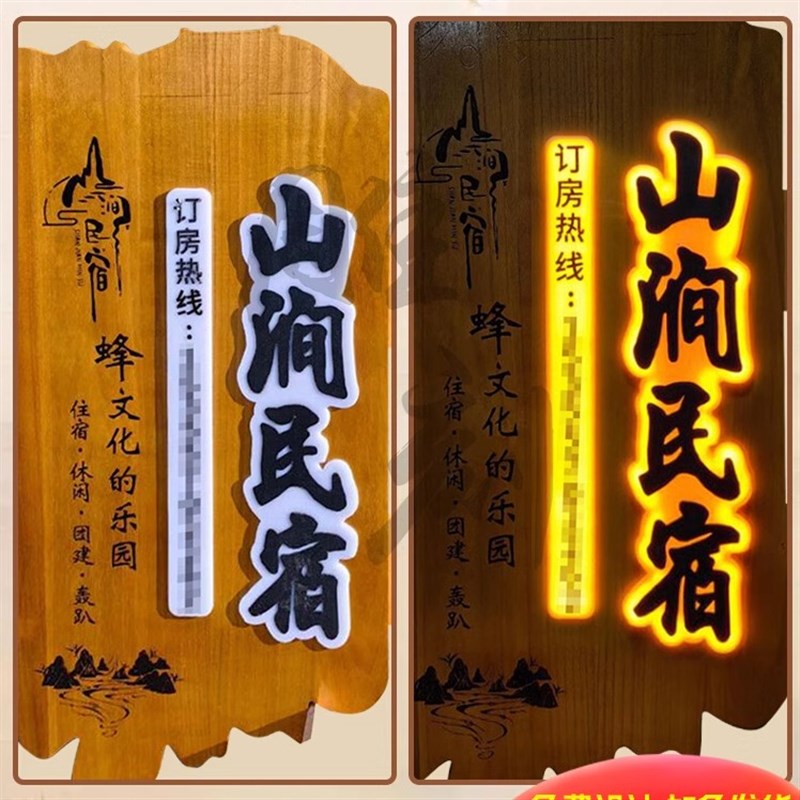 山涧民宿
订房热线：
山涧民宿
蜂文化的乐园
住宿·休闲·团建·轰趴
山涧民宿
订房热线：
山涧民宿
蜂文化的乐园
住宿·休闲·团建·轰趴